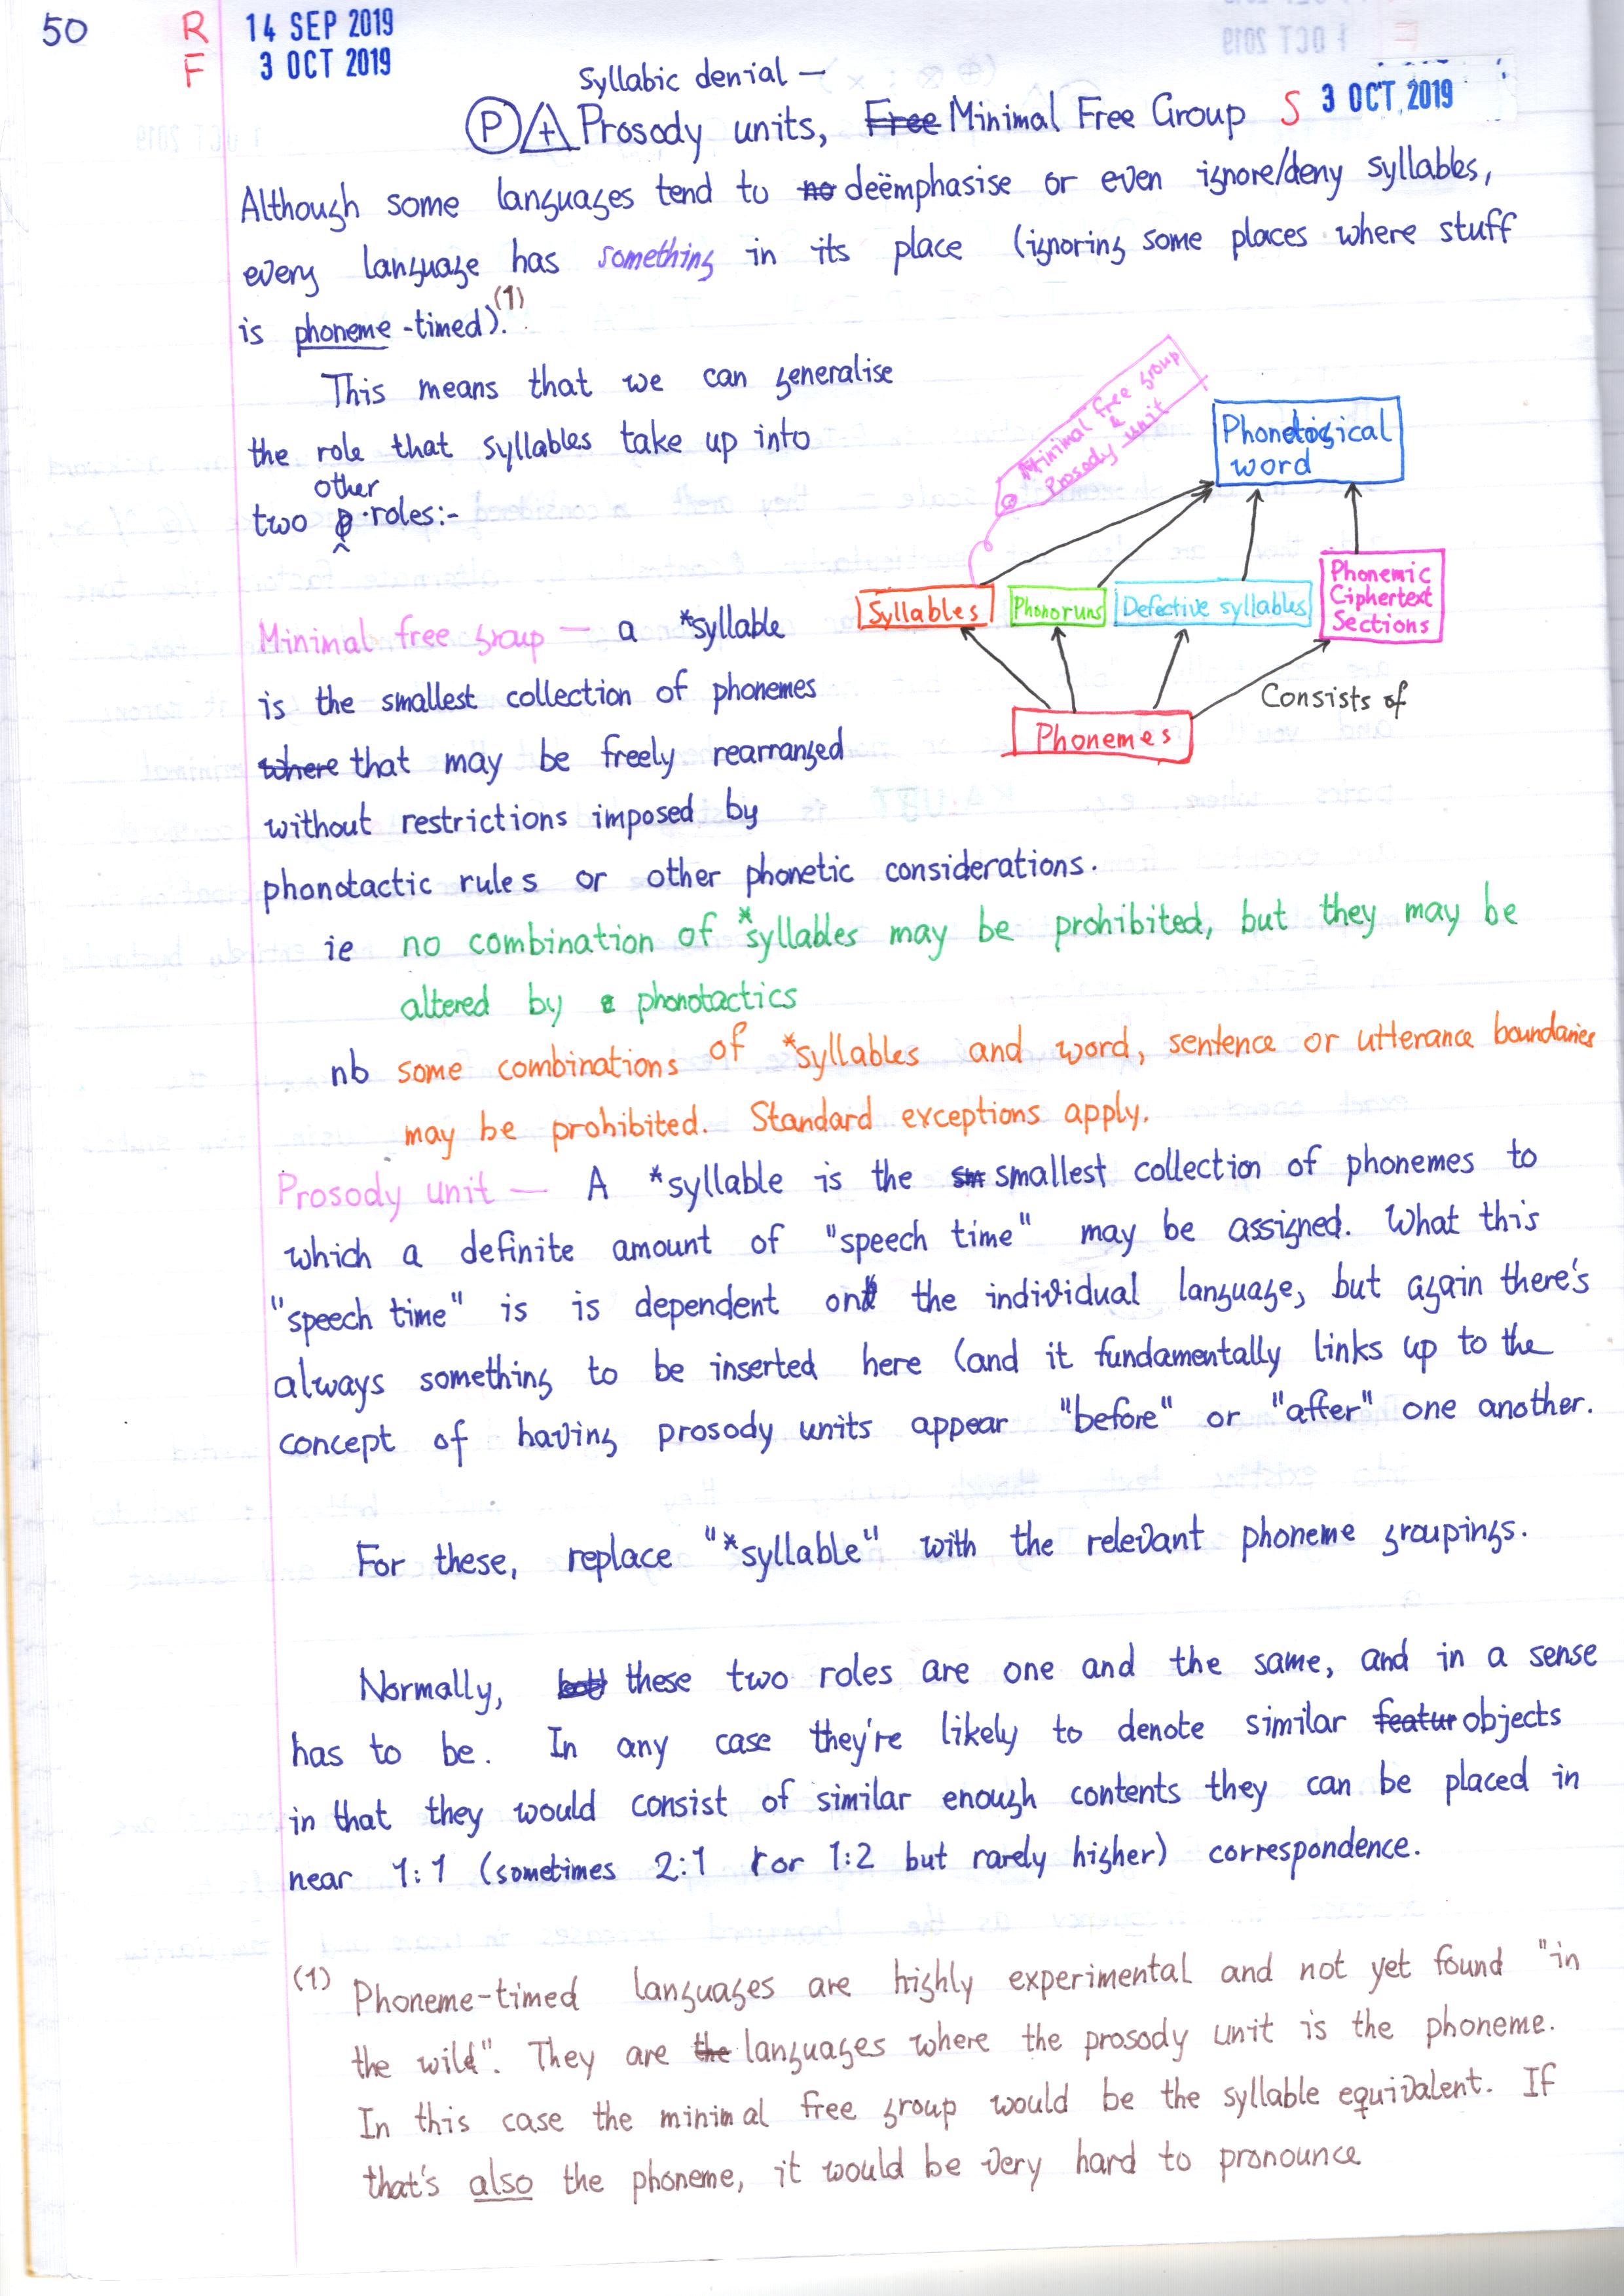 50
R 14 SEP 2019
F 3 OCT 2019
Syllabic denial —
P + Prosody units, Free Minimal Free Group S 3 OCT 2019
Although some languages tend to no deëmphasise or even ignore/deny syllables,
every language has something in its place (ignoring some places where stuff
is phoneme-timed).(1)
This means that we can generalise
the role that syllables take up into
other
two roles:-
Minimal free group & Prosody unit
Phonological
word
Syllables
Phonoruns
Defective syllables
Phonemic
Ciphertext
Sections
Phonemes
Consists of
Minimal free group — a *syllable
is the smallest collection of phonemes
where that may be freely rearranged
without restrictions imposed by
phonotactic rules or other phonetic considerations.
ie no combination of *syllables may be prohibited, but they may be
altered by phonotactics
nb some combinations of *syllables and word, sentence or utterance boundaries
may be prohibited. Standard exceptions apply.
Prosody unit — A *syllable is the sm smallest collection of phonemes to
which a definite amount of "speech time" may be assigned. What this
"speech time" is is dependent on the individual language, but again there's
always something to be inserted here (and it fundamentally links up to the
concept of having prosody units appear "before" or "after" one another.
For these, replace "*syllable" with the relevant phoneme groupings.
Normally, both these two roles are one and the same, and in a sense
has to be. In any case they're likely to denote similar featur objects
in that they would consist of similar enough contents they can be placed in
near 1:1 (sometimes 2:1 or 1:2 but rarely higher) correspondence.
(1) Phoneme-timed languages are highly experimental and not yet found "in
the wild". They are the languages where the prosody unit is the phoneme.
In this case the minimal free group would be the syllable equivalent. If
that's also the phoneme, it would be very hard to pronounce